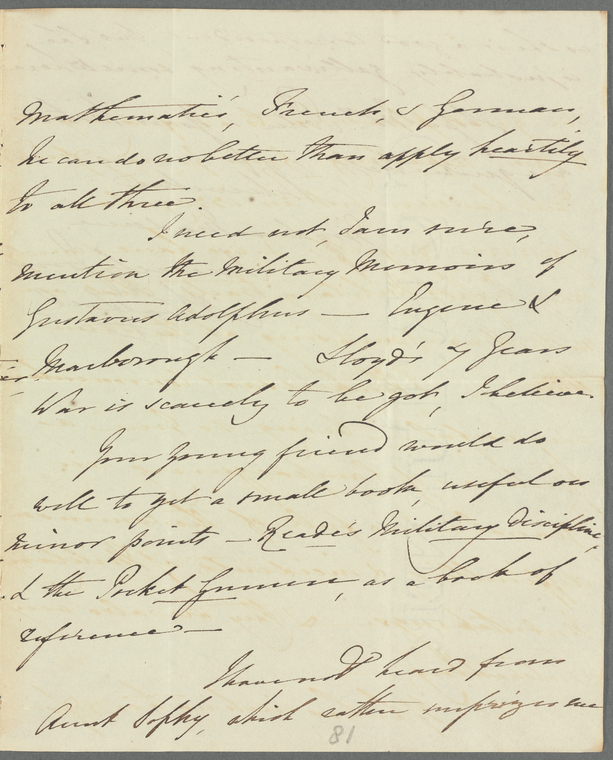 Mathematics, French, & German,
he can do no better than apply heartily
to all three.
I need not, I am sure,
mention the Military Memoirs of
Gustavus Adolphus — Eugene &
Marlborough — Lloyd's 7 Years
War is scarcely to be got, I believe.
Your young friend would do
well to get a small book, useful on
minor points — Reade's Military Discipline,
& the Pocket Gunner, as a book of
reference —
I have not heard from
Aunt Sophy, which rather surprizes me
81